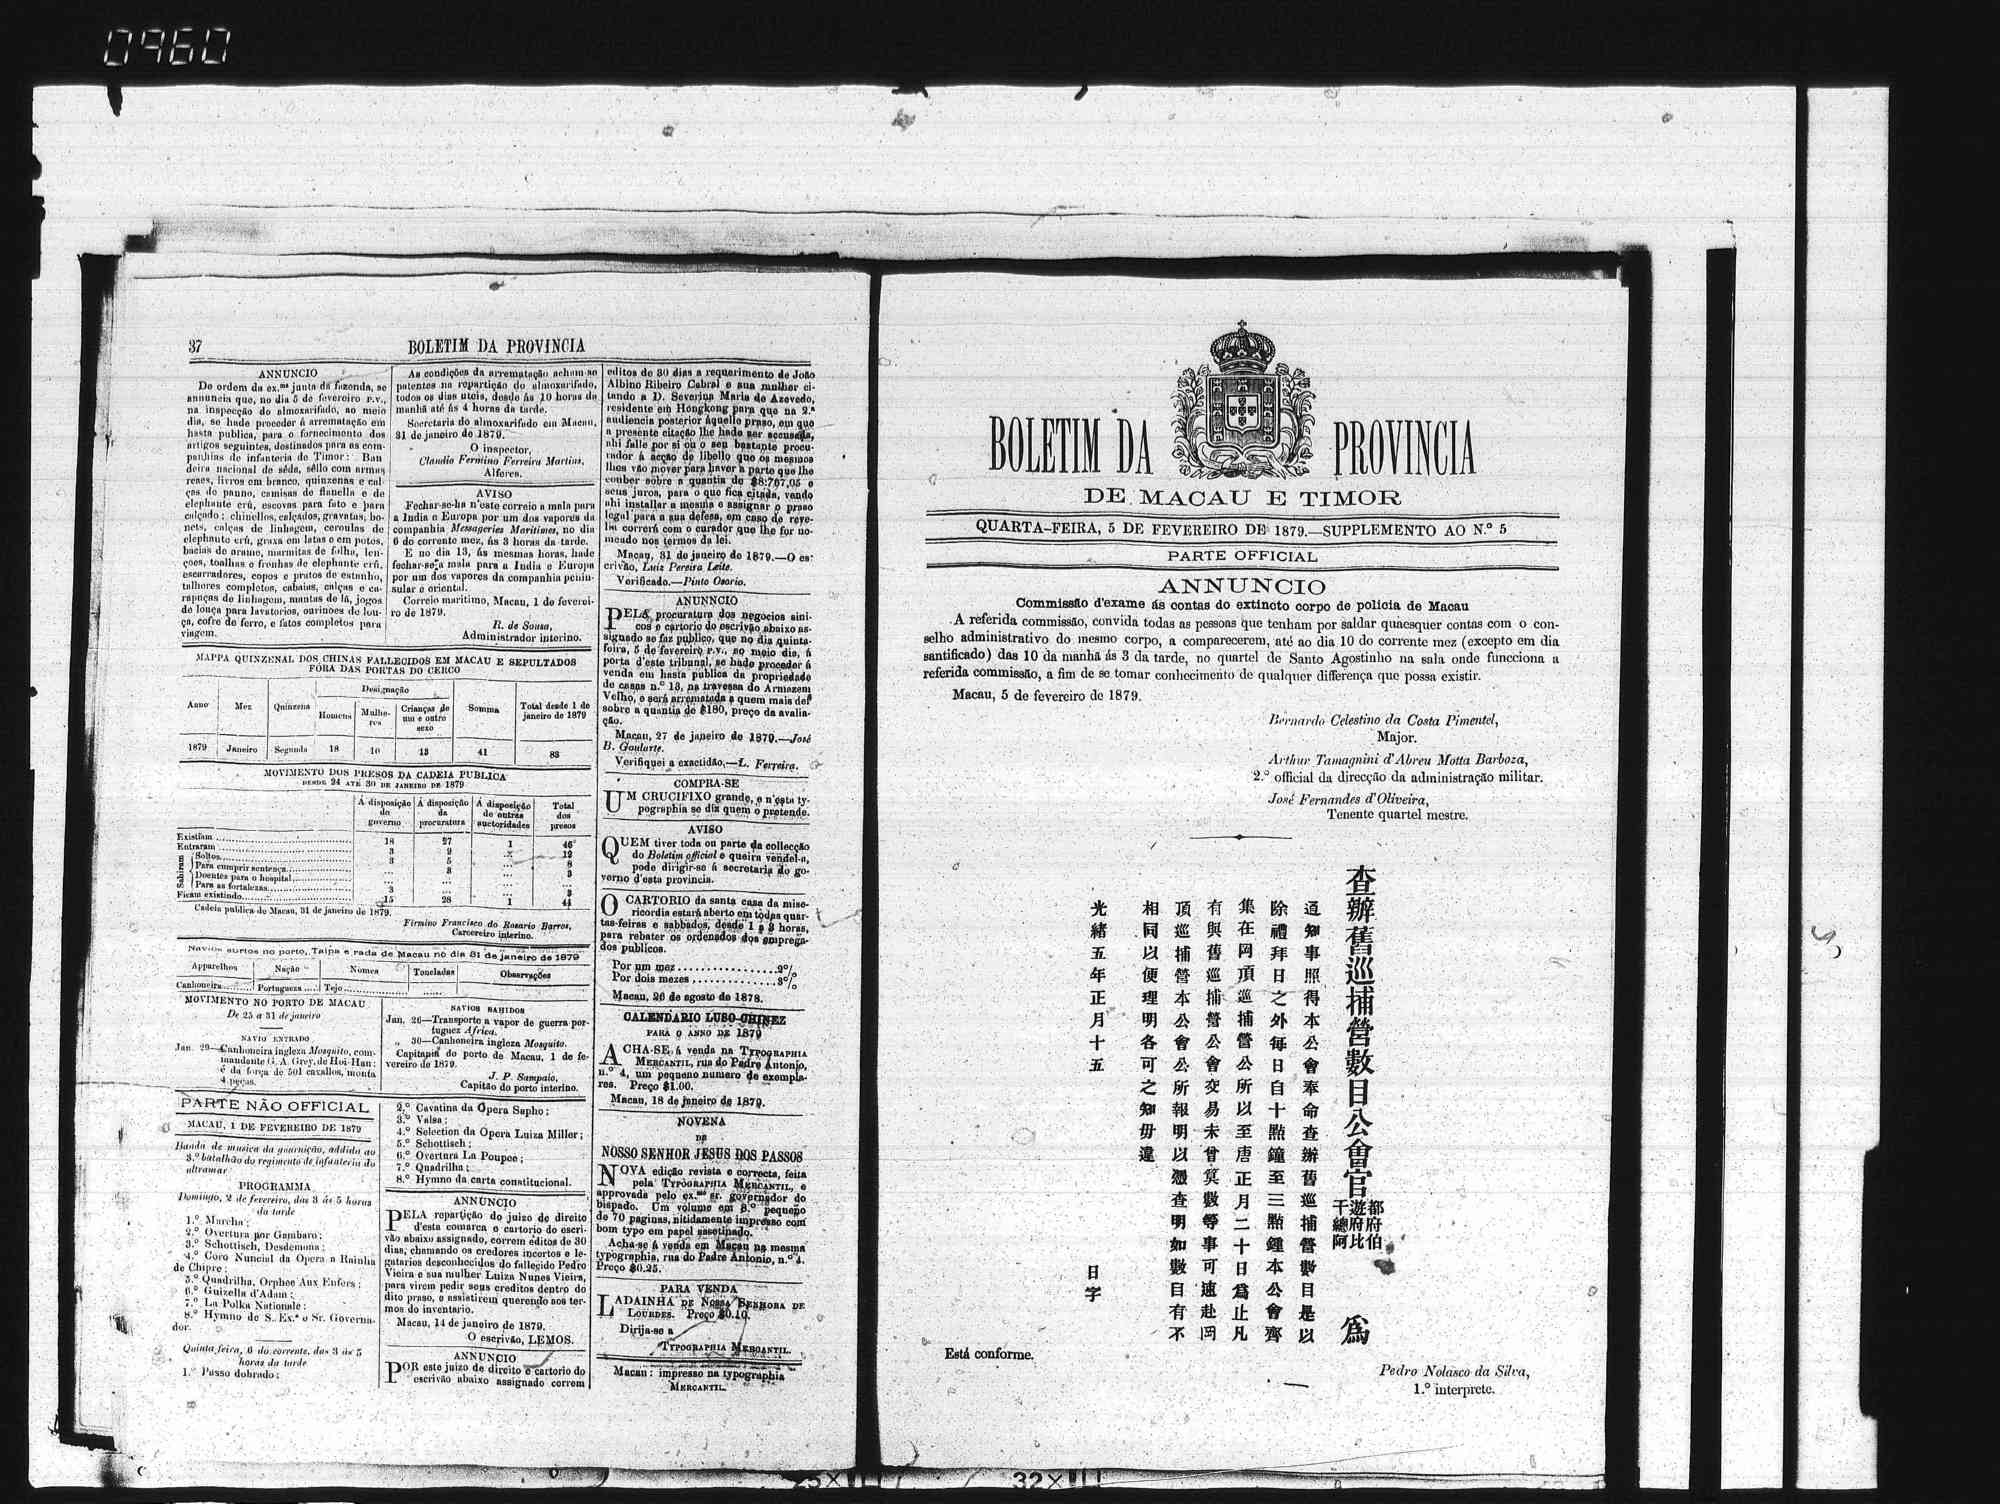 0960
37
BOLETIM DA PROVINCIA
ANNUNCIO
De ordem da ex.ma junta da fazenda, se
annuncia que, no dia 5 de fevereiro p.v.,
na inspecção do almoxarifado, ao meio
dia, se hade proceder á arrematação em
hasta publica, para o fornecimento dos
artigos seguintes, destinados para as com-
panhias de infanteria de Timor: Ban
deira nacional de sêda, sêllo com armas
reaes, livros em branco, quinzenas e cal-
ças de panno, camisas de flanella e de
elephante crú, escovas para fato e para
calçado; chinellos, calçados, gravatas, bo-
nets, calças de linhagem, ceroulas de
elephante crú, graxa em latas e em potes,
bacias de arame, marmitas de folha, len-
çoes, toalhas e fronhas de elephante crú,
escarradores, copos e pratos de estanho,
talheres completos, cabaias, calças e ca-
rapuças de linhagem, mantas de lã, jogos
de louça para lavatorios, ourinoes de lou-
ça, cofre de ferro, e fatos completos para
viagem.
As condições da arrematação acham-se
patentes na repartição do almoxarifado,
todos os dias uteis, desde ás 10 horas da
manhã até ás 4 horas da tarde.
Secretaria do almoxarifado em Macau,
31 de janeiro de 1879.
O inspector,
Claudio Fermino Ferreira Martins,
Alferes.
AVISO
Fechar-se-ha n'este correio a mala para
a India e Europa por um dos vapores da
companhia Messageries Maritimes, no dia
6 do corrente mez, ás 3 horas da tarde.
E no dia 13, ás mesmas horas, hade
fechar-se a mala para a India e Europa
por um dos vapores da companhia penin-
sular e oriental.
Correio maritimo, Macau, 1 de feverei-
ro de 1879.
R. de Sousa,
Administrador interino.
MAPPA QUINZENAL DOS CHINAS FALLECIDOS EM MACAU E SEPULTADOS
FÓRA DAS PORTAS DO CERCO
Anno Mez Quinzena Designação Somma Total desde 1 de janeiro de 1879
Homens Mulheres Crianças de um e outro sexo
1879 Janeiro Segunda 18 10 13 41 83
MOVIMENTO DOS PRESOS DA CADEIA PUBLICA
DESDE 24 ATÉ 30 DE JANEIRO DE 1879
Á disposição do governo Á disposição da procuratura Á disposição de outras auctoridades Total dos presos
Existiam 18 27 1 46
Entraram 3 9 ... 12
Sahiram
Soltos 3 5 ... 8
Para cumprir sentença ... 3 ... 3
Doentes para o hospital ... ... ...
Para as fortalezas 3 ... ... 3
Ficam existindo 15 28 1 44
Cadeia publica de Macau, 31 de janeiro de 1879.
Firmino Francisco do Rosario Barros,
Carcereiro interino.
Navios surtos no porto, Taipa e rada de Macau no dia 31 de janeiro de 1879
Apparelhos Nação Nomes Toneladas Observações
Canhoneira Portugueza Tejo
MOVIMENTO NO PORTO DE MACAU
De 25 a 31 de janeiro
NAVIO ENTRADO
Jan. 29—Canhoneira ingleza Mosquito, com-
mandante G. A. Grey, de Hoi-Han:
é da força de 501 cavallos, monta
4 peças.
NAVIOS SAHIDOS
Jan. 26—Transporte a vapor de guerra por-
tuguez Africa.
„ 30—Canhoneira ingleza Mosquito.
Capitania do porto de Macau, 1 de fe-
vereiro de 1879.
J. P. Sampaio,
Capitão do porto interino.
PARTE NÃO OFFICIAL
MACAU, 1 DE FEVEREIRO DE 1879
Banda de musica da guarnição, addida ao
3.º batalhão do regimento de infanteria do
ultramar
PROGRAMMA
Domingo, 2 de fevereiro, das 3 ás 5 horas
da tarde
1.º Marcha;
2.º Overtura por Gambaro;
3.º Schottisch, Desdemona;
4.º Coro Nuncial da Opera a Rainha
de Chipre;
5.º Quadrilha, Orphee Aux Enfers;
6.º Guizella d'Adam;
7.º La Polka Nationale;
8.º Hymno de S. Ex.a o Sr. Governa-
dor.
Quinta feira, 6 do corrente, das 3 ás 5
horas da tarde
1.º Passo dobrado;
2.º Cavatina da Opera Sapho;
3.º Valsa;
4.º Selection da Opera Luiza Miller;
5.º Schottisch;
6.º Overtura La Poupee;
7.º Quadrilha;
8.º Hymno da carta constitucional.
ANNUNCIO
PELA repartição do juizo de direito
d'esta comarca e cartorio do escri-
vão abaixo assignado, correm editos de 30
dias, chamando os credores incertos e le-
gatarios desconhecidos do fallecido Pedro
Vieira e sua mulher Luiza Nunes Vieira,
para virem pedir seus creditos dentro do
dito praso, e assistirem querendo aos ter-
mos do inventario.
Macau, 14 de janeiro de 1879.
O escrivão, LEMOS.
ANNUNCIO
POR este juizo de direito e cartorio do
escrivão abaixo assignado correm
editos de 30 dias a requerimento de João
Albino Ribeiro Cabral e sua mulher ci-
tando a D. Severina Maria de Azevedo,
residente em Hongkong para que na 2.a
audiencia posterior áquelle praso, em que
a presente citação lhe hade ser accusada,
ahi falle por si ou o seu bastante procu-
rador á acção de libello que os mesmos
lhes vão mover para haver a parte que lhe
couber sobre a quantia de $8:767,05 e
seus juros, para o que fica citada, vendo
ahi installar a mesma e assignar o praso
legal para a sua defesa, em caso de reve-
lia correrá com o curador que lhe for no-
meado nos termos da lei.
Macau, 31 de janeiro de 1879.—O es-
crivão, Luiz Pereira Leite.
Verificado.—Pinto Osorio.
ANUNNCIO
PELA procuratura dos negocios sini-
cos e cartorio do escrivão abaixo as-
signado se faz publico, que no dia quinta-
feira, 5 de fevereiro p.v., ao meio dia, á
porta d'este tribunal, se hade proceder á
venda em hasta publica da propriedade
de casas n.º 13, na travessa do Armazem
Velho, e será arrematada a quem mais der
sobre a quantia de $180, preço da avalia-
ção.
Macau, 27 de janeiro de 1879.—José
B. Goularte.
Verifiquei a exactidão,—L. Ferreira.
COMPRA-SE
UM CRUCIFIXO grande, e n'esta ty-
pographia se diz quem o pretende.
AVISO
QUEM tiver toda ou parte da collecção
do Boletim official e queira vendel-a,
pode dirigir-se á secretaria do go-
verno d'esta provincia.
O CARTORIO da santa casa da mise-
ricordia estará aberto em todas quar-
tas-feiras e sabbados, desde 1 a 3 horas,
para rebater os ordenados dos emprega-
dos publicos.
Por um mez 2%
Por dois mezes 3%
Macau, 26 de agosto de 1878.
CALENDARIO LUSO-CHINEZ
PARA O ANNO DE 1879
ACHA-SE á venda na TYPOGRAPHIA
MERCANTIL, rua do Padre Antonio,
n.º 4, um pequeno numero de exempla-
res. Preço $1.00.
Macau, 18 de janeiro de 1879.
NOVENA
DE
NOSSO SENHOR JESUS DOS PASSOS
NOVA edição revista e correcta, feita
pela TYPOGRAPHIA MERCANTIL, e
approvada pelo ex.mo sr. governador do
bispado. Um volume em 8.º pequeno
de 70 paginas, nitidamente impresso com
bom typo em papel assetinado.
Acha-se á venda em Macau na mesma
typographia, rua do Padre Antonio, n.º 4.
Preço $0.25.
PARA VENDA
LADAINHA DE NOSSA SENHORA DE
LOURDES. Preço $0.10.
Dirija-se a
TYPOGRAPHIA MERCANTIL.
Macau: impresso na typographia
MERCANTIL.
BOLETIM DA PROVINCIA
DE MACAU E TIMOR
QUARTA-FEIRA, 5 DE FEVEREIRO DE 1879.—SUPPLEMENTO AO N.º 5
PARTE OFFICIAL
ANNUNCIO
Commissão d'exame ás contas do extincto corpo de policia de Macau
A referida commissão, convida todas as pessoas que tenham por saldar quaesquer contas com o con-
selho administrativo do mesmo corpo, a comparecerem, até ao dia 10 do corrente mez (excepto em dia
santificado) das 10 da manhã ás 3 da tarde, no quartel de Santo Agostinho na sala onde funcciona a
referida commissão, a fim de se tomar conhecimento de qualquer differença que possa existir.
Macau, 5 de fevereiro de 1879.
Bernardo Celestino da Costa Pimentel,
Major.
Arthur Tamagnini d'Abreu Motta Barboza,
2.º official da direcção da administração militar.
José Fernandes d'Oliveira,
Tenente quartel mestre.
查辦舊巡捕營數目公會官
都府伯
遊府比
千總阿
爲
通知事照得本公會奉命查辦舊巡捕營數目是以
除禮拜日之外每日自十點鐘至三點鐘本公會齊
集在岡頂巡捕營公所以至唐正月二十日爲止凡
有與舊巡捕營公會交易未曾算數等事可速赴岡
頂巡捕營本公會公所報明以憑查明如數目有不
相同以便理明各可之知毋違
光緒五年正月十五
日字
Está conforme.
Pedro Nolasco da Silva,
1.º interprete.
32×